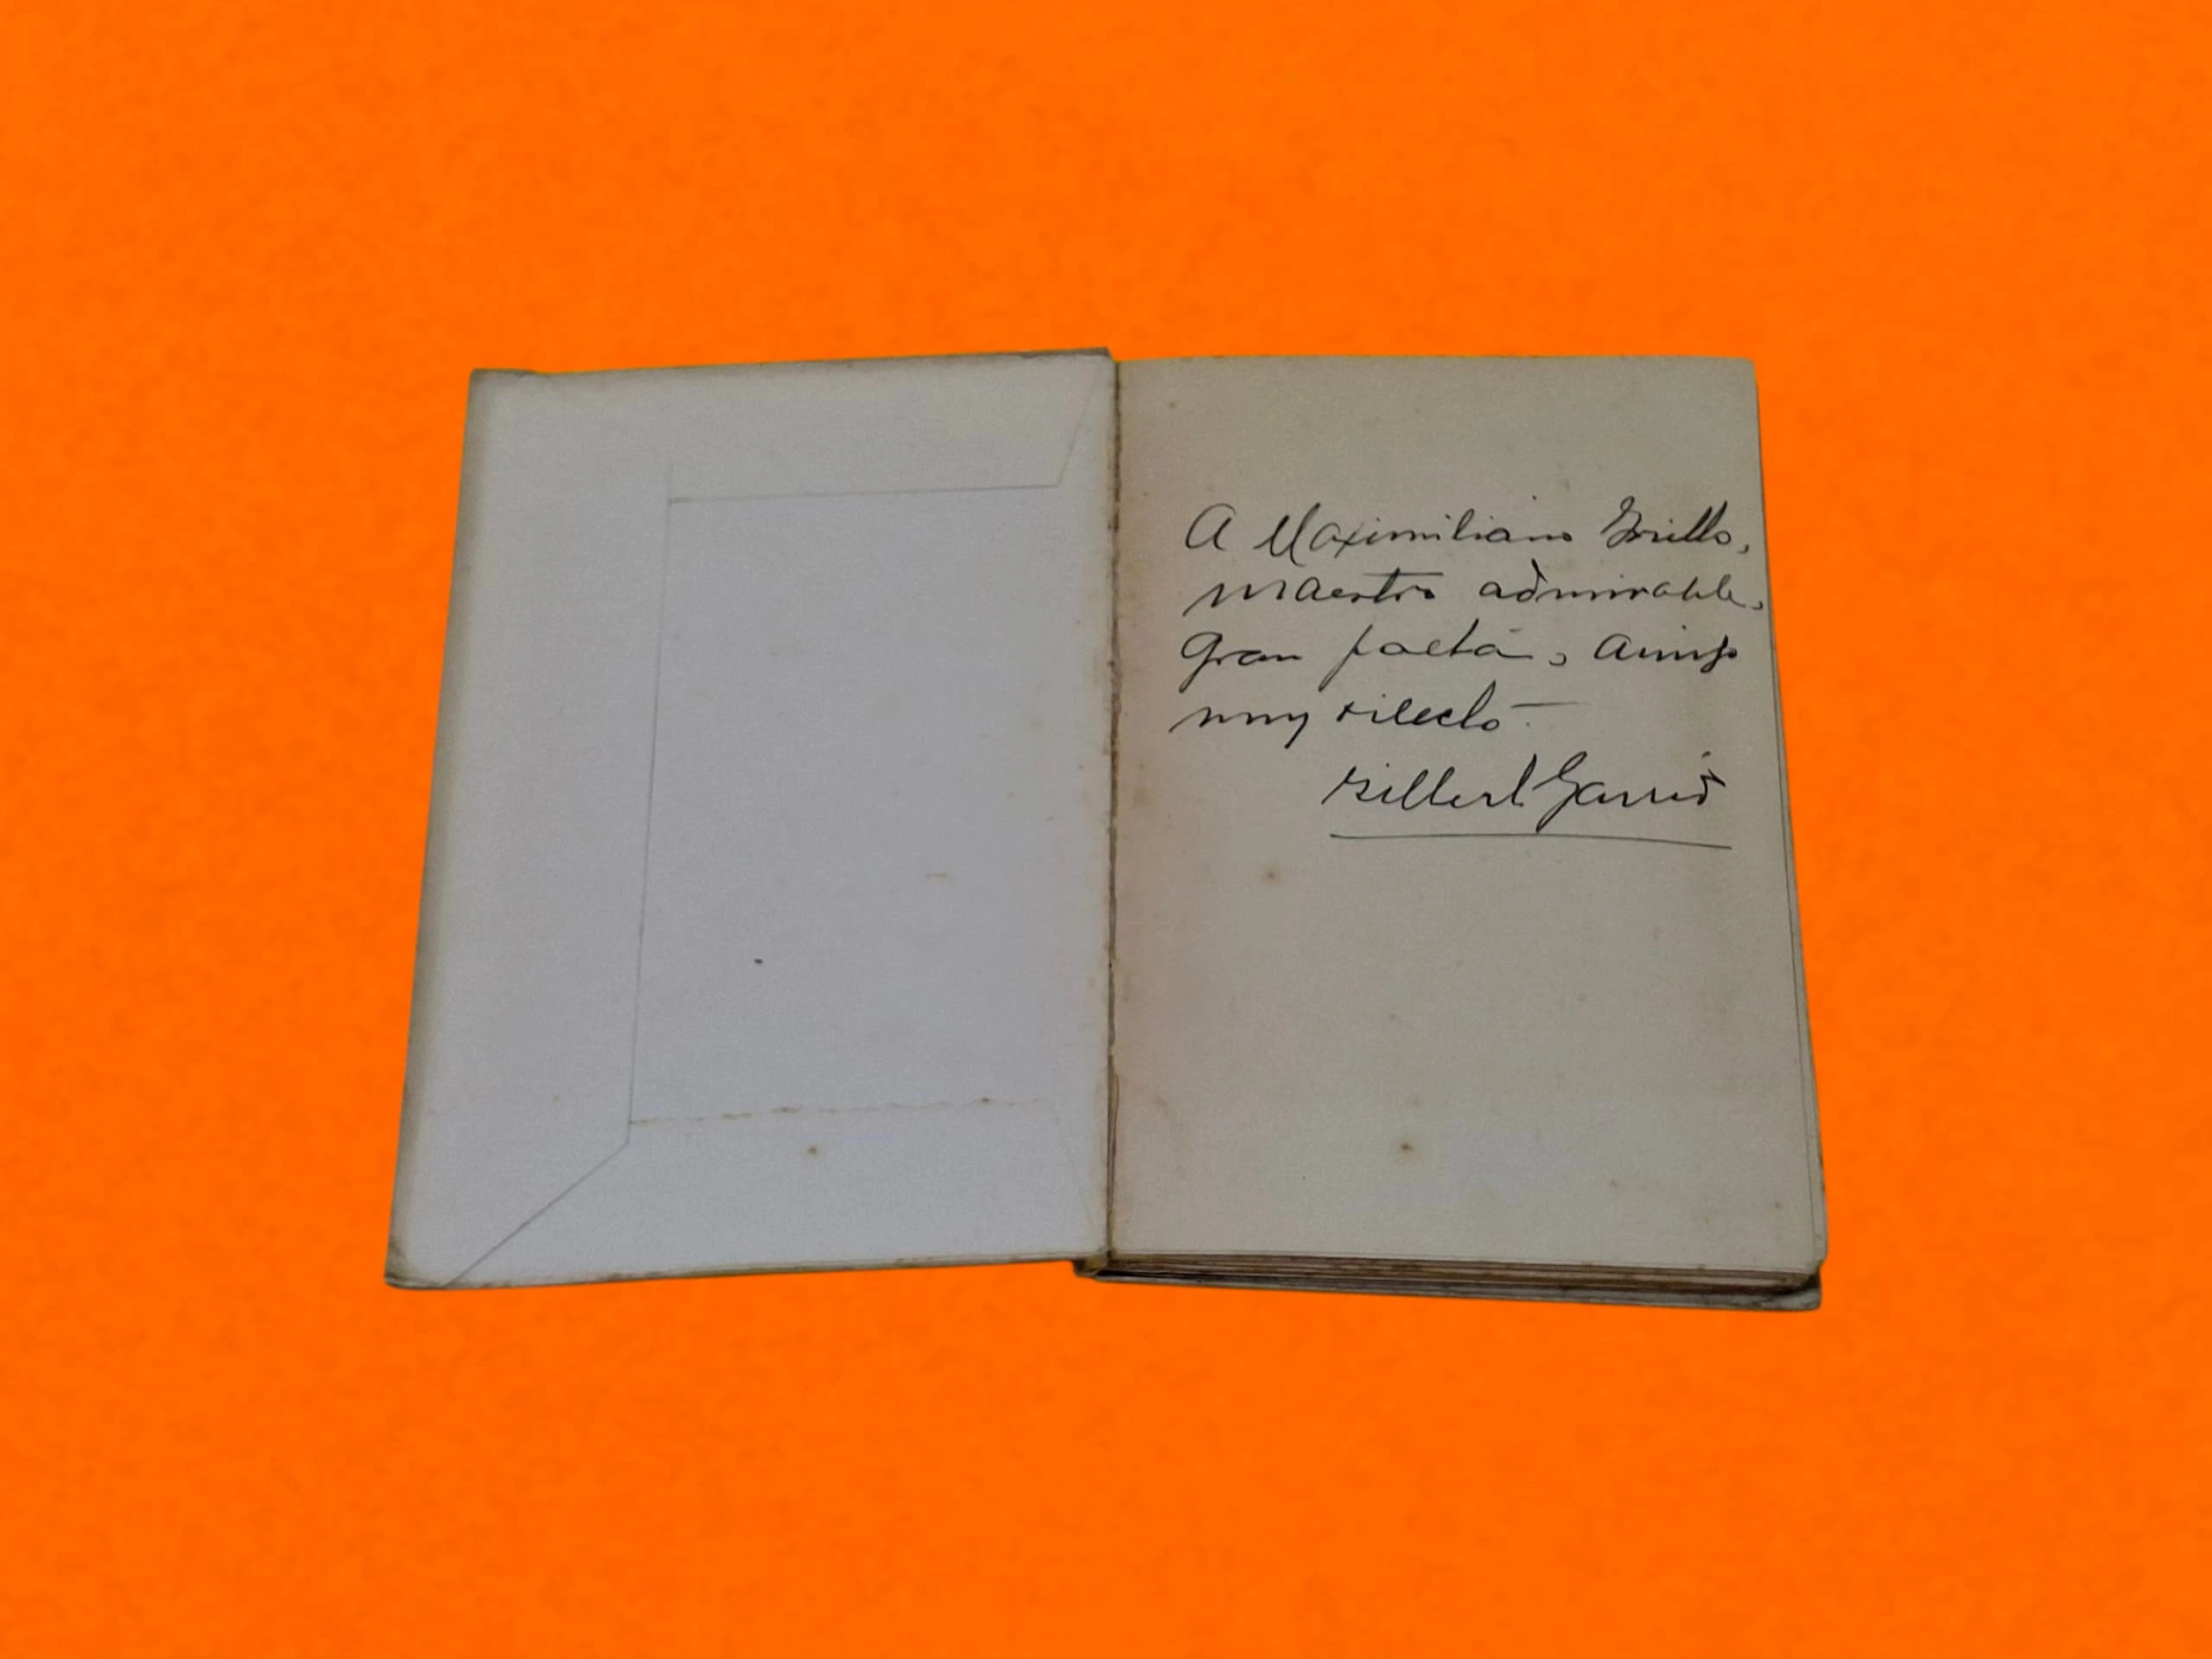 A Maximiliano Grillo,
maestro admirable,
Gran poeta, amigo
muy dilecto.—
Gilbert Garrid